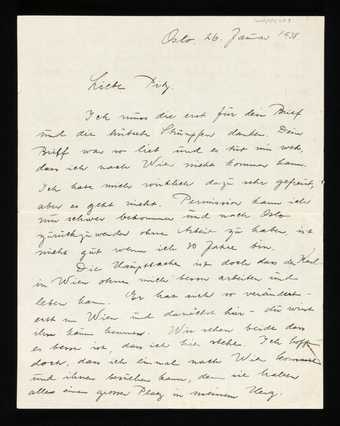 Oslo, 26. Januar 1938
Liebe
Ich muss dir erst für den Brief
und die Strümpfe danken. Dein
Brief war so lieb und es tut mir weh,
dass ich nach Wien nicht kommen kann.
Ich habe mich wirklich dazu sehr gefreut,
aber es geht nicht. Permission kann ich
nur schwer bekommen und nach Oslo
zurückzuwenden ohne Arbeit zu haben, ist
nicht gut wenn ich 30 Jahre bin.
Die Hauptsache ist doch dass der Karl
in Wien ohne mich besser arbeiten und
leben kann. Er hat sich so verändert -
erst in Wien und danach hier - du wirst
ihn kaum kennen. Wir sehen beide dass
es besser ist, dass ich hier bleibe. Ich hoffe
doch, dass ich einmal nach Wien kommen
und ihnen besuchen kann, denn sie haben
alles einen grossen Platz in meinem Herz.